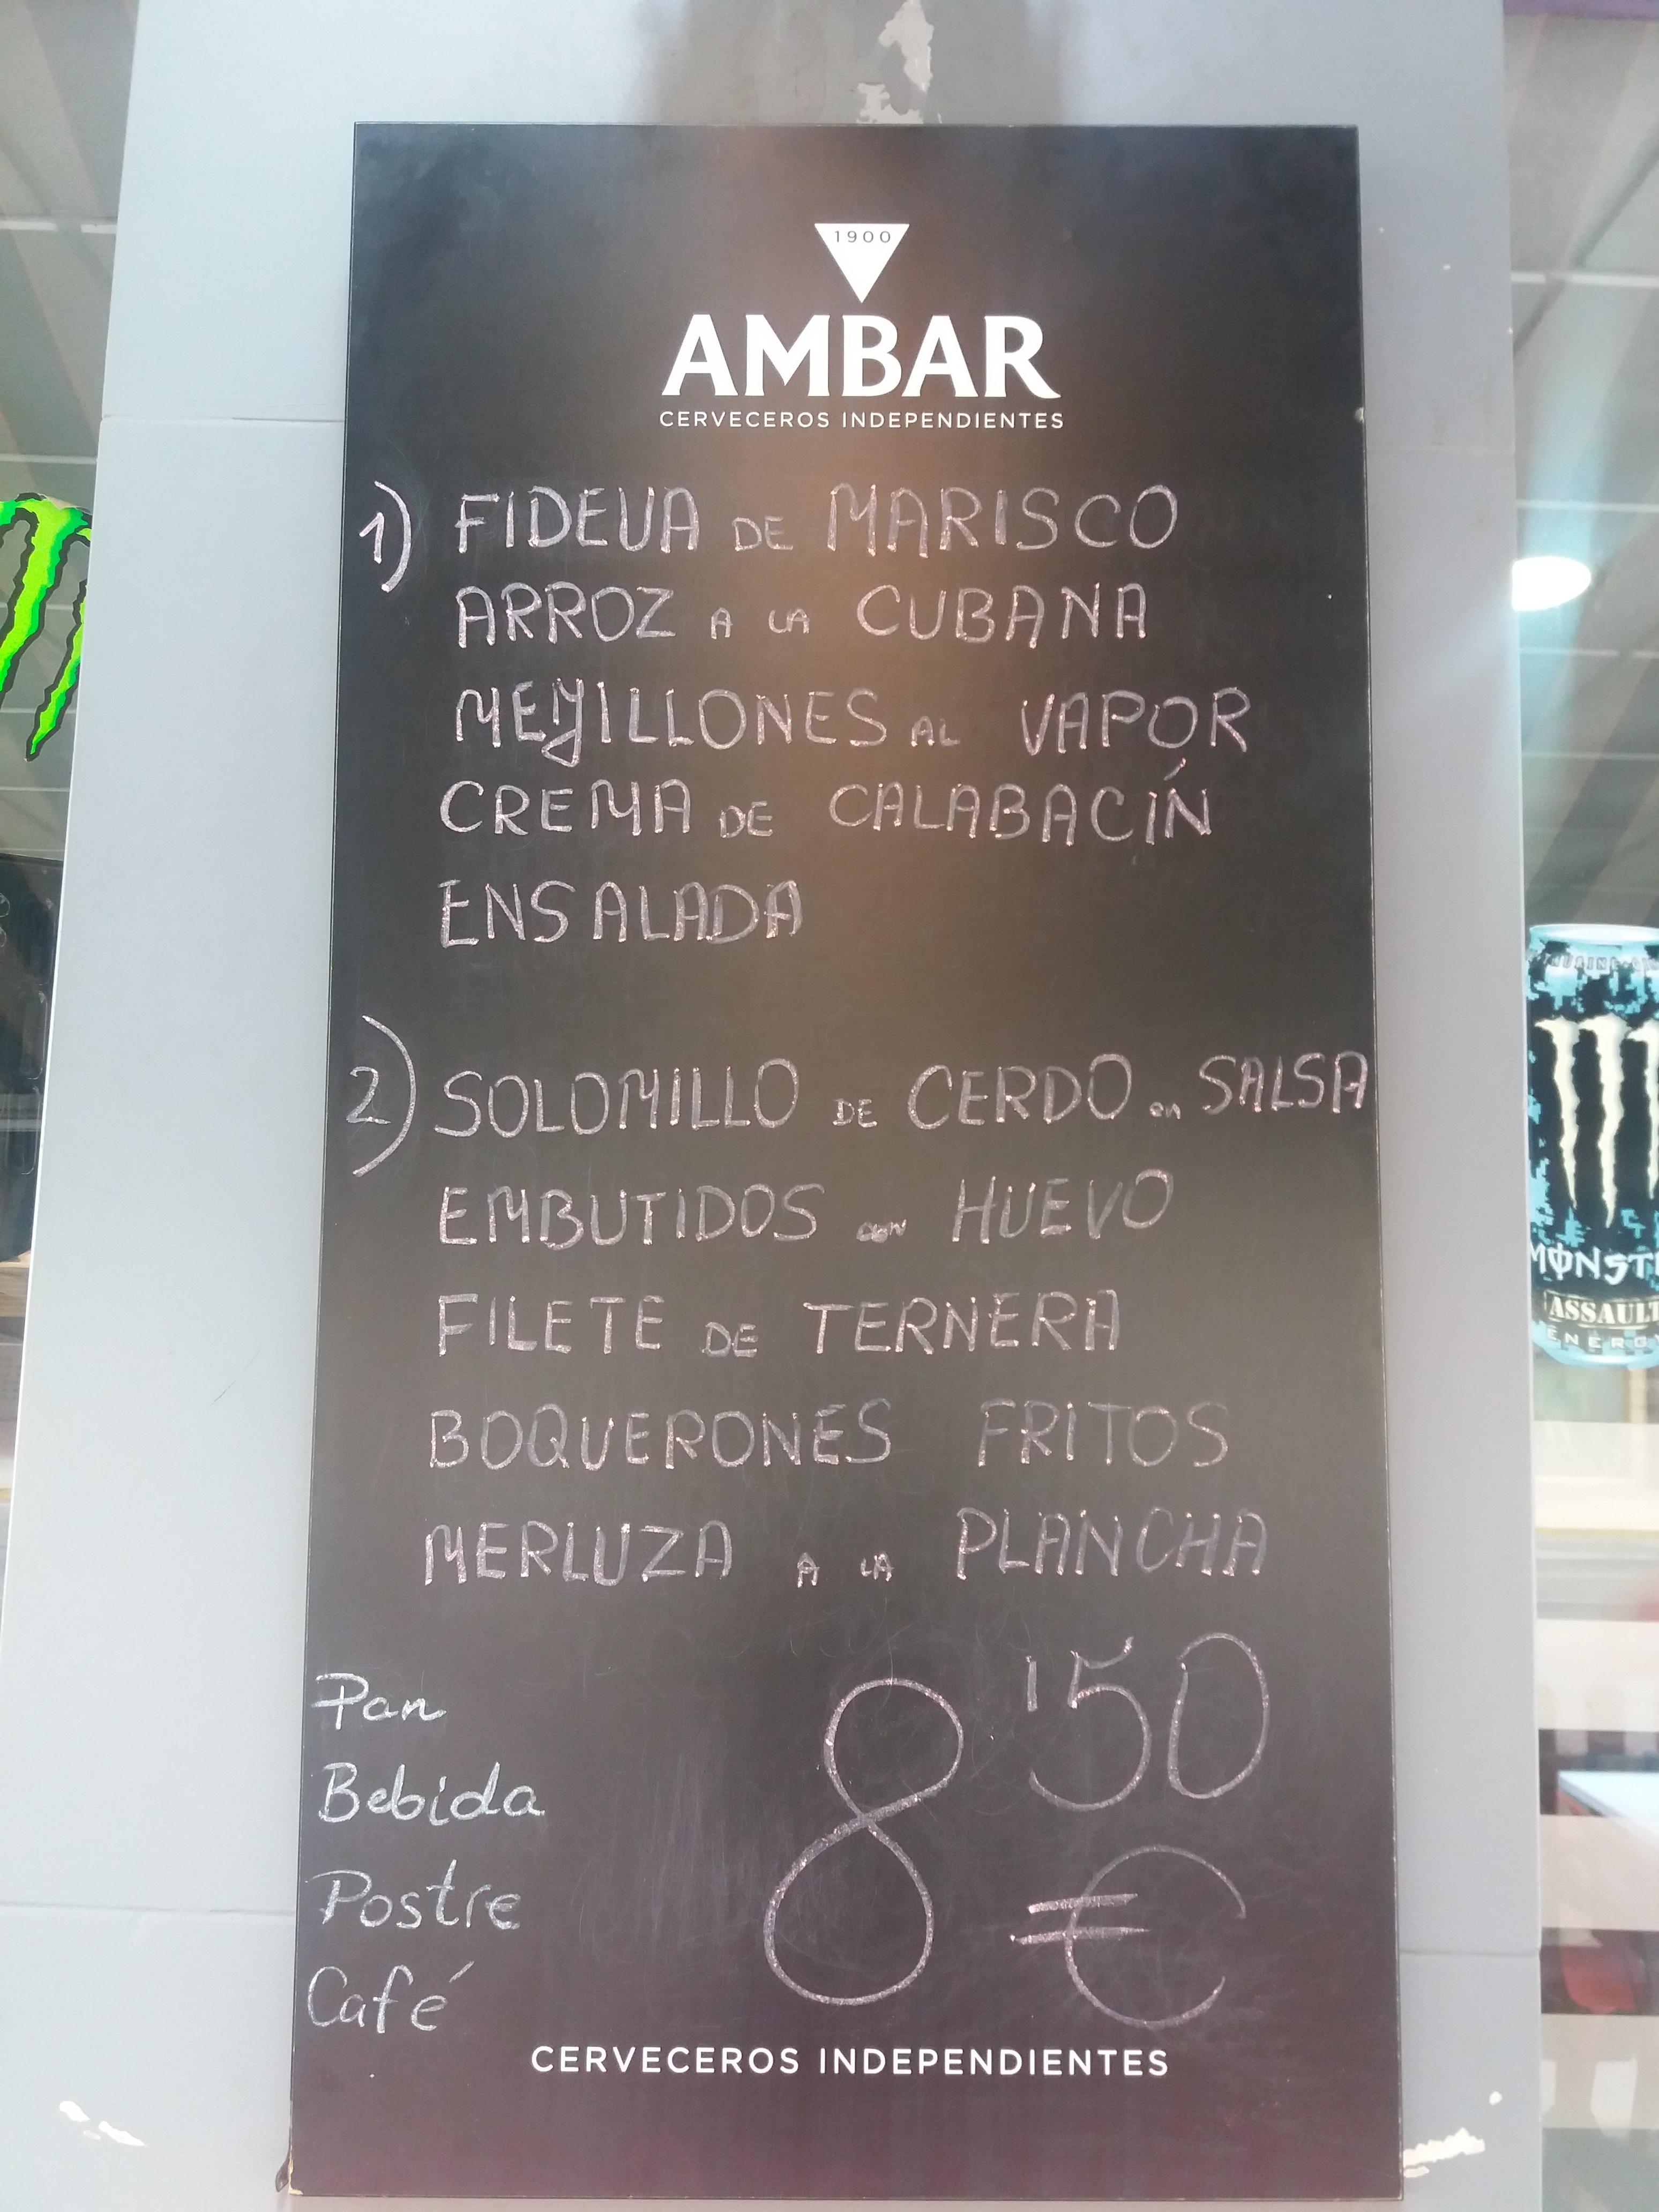 1900
AMBAR
CERVECEROS INDEPENDIENTES
1) FIDEUA DE MARISCO
ARROZ A LA CUBANA
MEJILLONES AL VAPOR
CREMA DE CALABACÍN
ENSALADA
2) SOLOMILLO DE CERDO en SALSA
EMBUTIDOS con HUEVO
FILETE DE TERNERA
BOQUERONES FRITOS
MERLUZA A LA PLANCHA
Pan
Bebida
Postre
Café
8'50
€
CERVECEROS INDEPENDIENTES
ASSAULT
ENERGY